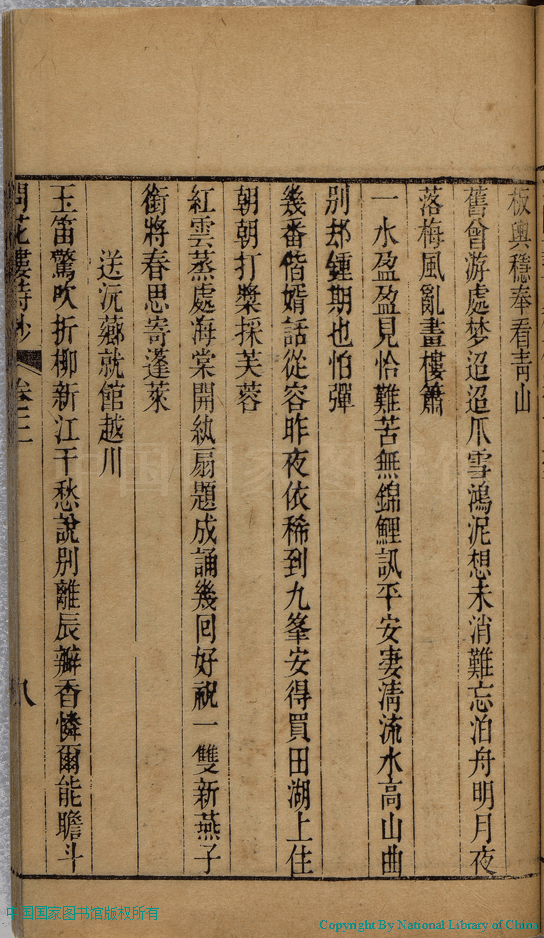 板輿穩奉看青山
舊曾游處梦迢迢爪雪鴻泥想未消難忘泊舟明月夜
落梅風亂畫樓簫
一水盈盈見恰難苦無錦鯉訊平安凄清流水高山曲
別却鍾期也怕彈
幾番偕婿話從容昨夜依稀到九峯安得買田湖上住
朝朝打槳採芙蓉
紅雲蒸處海棠開紈扇題成誦幾回好祝一雙新燕子
銜將春思寄蓬萊
送沅薌就館越川
玉笛驚吹折柳新江干愁說別離辰瓣香憐爾能瞻斗
問花樓詩鈔 卷三
八
中国国家图书馆版权所有
Copyright By National Library of China